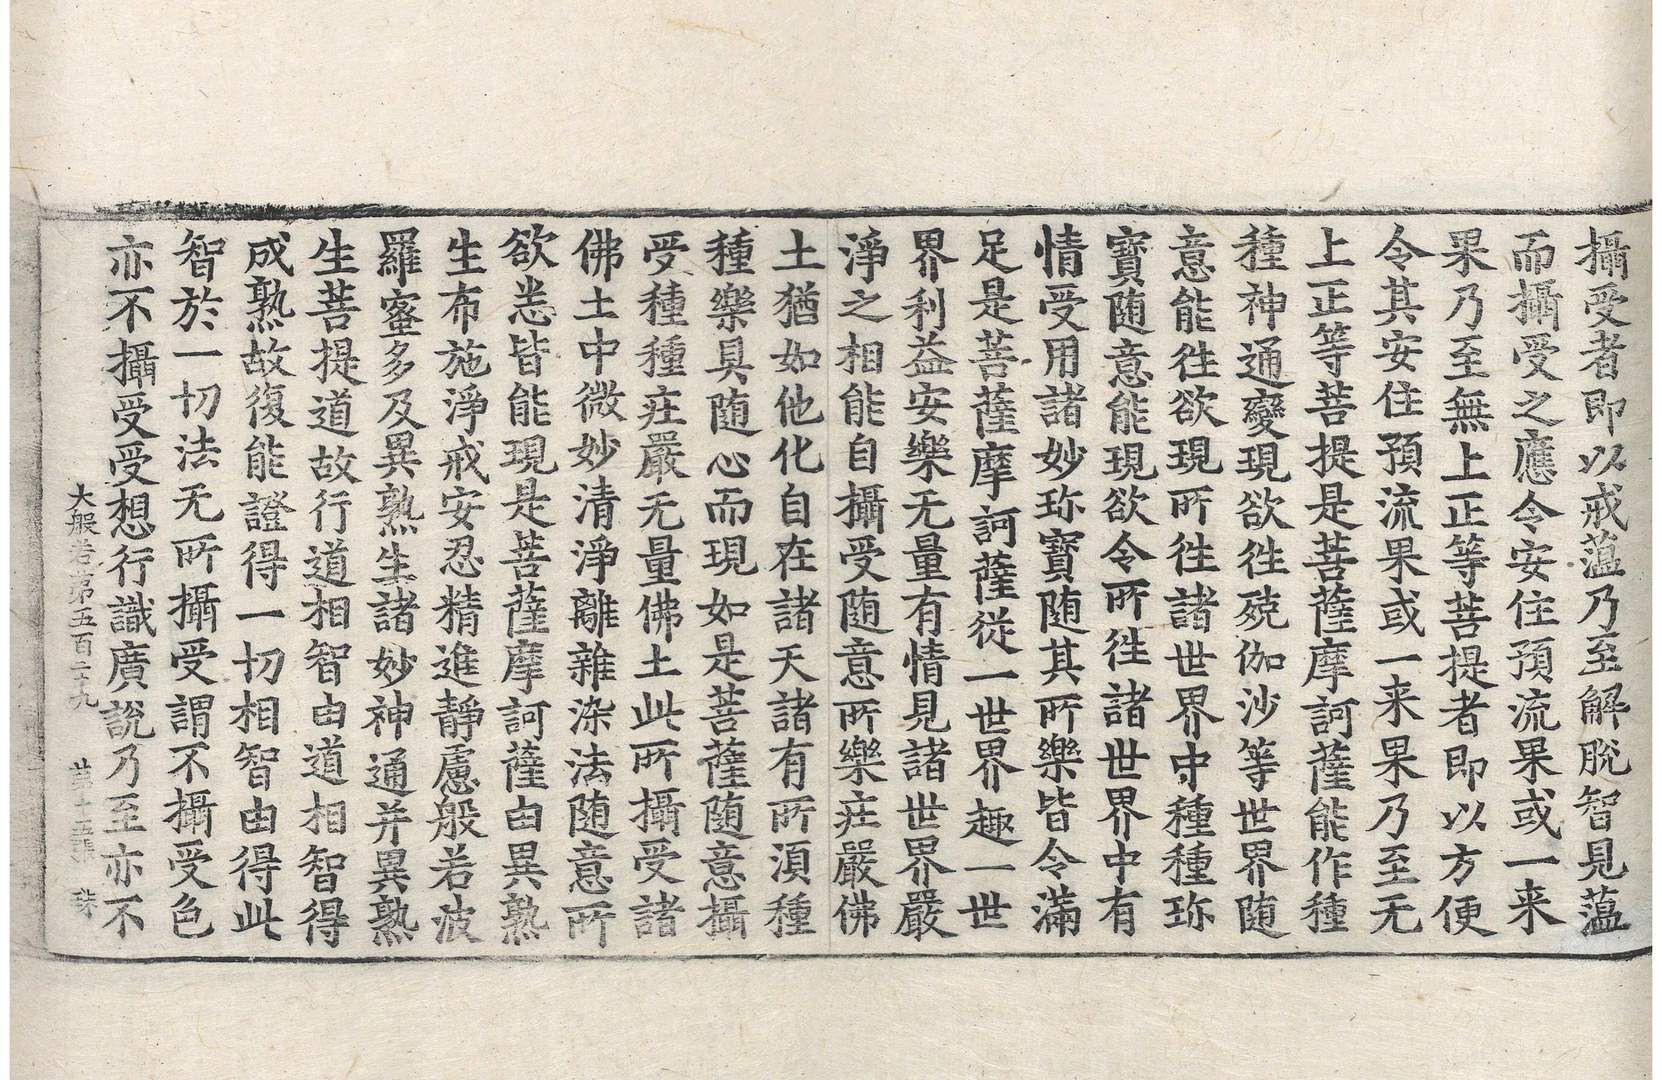 攝受者即以戒蘊乃至解脫智見蘊
而攝受之應令安住預流果或一来
果乃至無上正等菩提者即以方便
令其安住預流果或一来果乃至无
上正等菩提是菩薩摩訶薩能作種
種神通變現欲往殑伽沙等世界随
意能往欲現所往諸世界中種種珎
寶随意能現欲令所往諸世界中有
情受用諸妙珎寶随其所樂皆令滿
足是菩薩摩訶薩從一世界趣一世
界利益安樂无量有情見諸世界嚴
淨之相能自攝受随意所樂庄嚴佛
土猶如他化自在諸天諸有所湏種
種樂具随心而現如是菩薩随意攝
受種種庄嚴无量佛土此所攝受諸
佛土中微妙清淨離雜染法随意所
欲悉皆能現是菩薩摩訶薩由異熟
生布施淨戒安忍精進靜慮般若波
羅蜜多及異熟生諸妙神通并異熟
生菩提道故行道相智由道相智得
成熟故復能證得一切相智由得此
智於一切法无所攝受謂不攝受色
亦不攝受受想行識廣說乃至亦不
大般若第五百二十九 第十五張